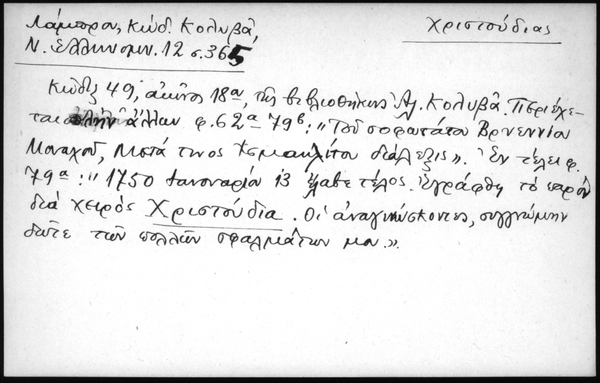 Χριστούδιας
Λάμπρου, Κώδ. Κολυβᾶ,
Ν. Ἑλληνομν. 12 σ. 365
Κώδιξ 49, αἰῶνος 18ου, τῆς βιβλιοθήκης Ἀλ. Κολυβᾶ. Περιέχε-
ται πλὴν ἄλλων φ. 62α 79β: "Τοῦ σοφωτάτου Βρυεννίου
Μοναχοῦ, Μετά τινος Ἰσμαηλίτου διάλεξις". Ἐν τέλει φ.
79α: "1750 Ἰανουαρίου 13 ἔλαβε τέλος. Ἐγράφθη τὸ παρὸν
διὰ χειρὸς Χριστούδια. Οἱ ἀναγινώσκοντες, συγγνώμην
δῶτε τῶν πολλῶν σφαλμάτων μου".